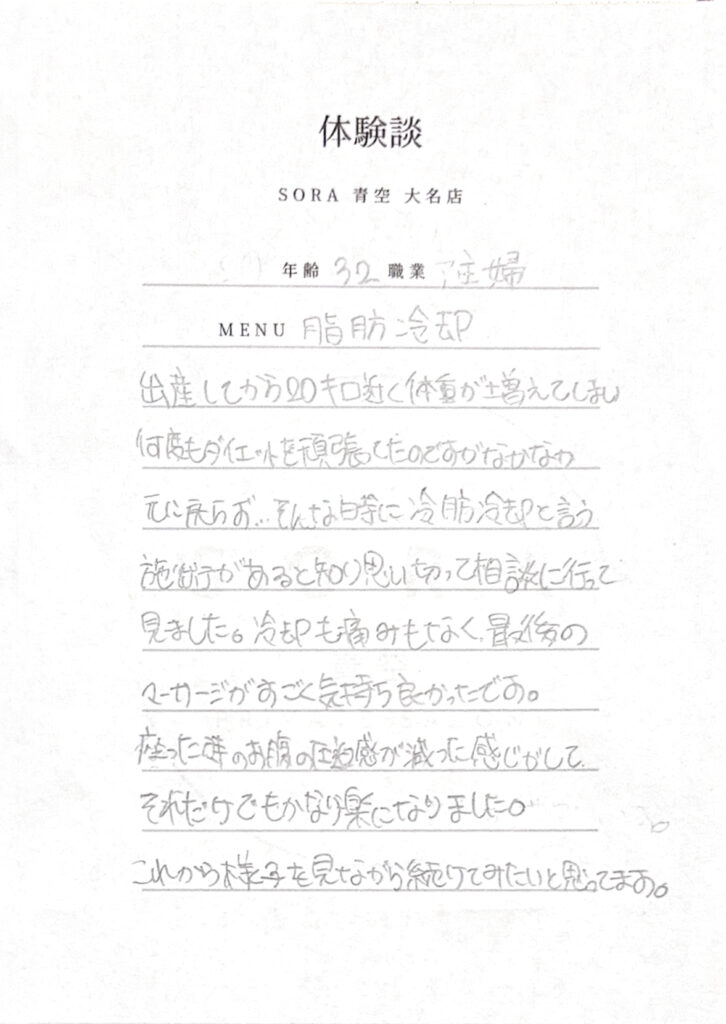 体験談
SORA 青空 大名店
年齢 32 職業 主婦
MENU 脂肪冷却
出産してから20キロ近く体重が増えてしまい
何度もダイエットを頑張ってたのですがなかなか
元に戻らず...そんな時に冷肪冷却と言う
施術があると知り思い切って相談に行って
見ました。冷却も痛みもなく、最後の
マーサージがすごく気持ち良かったです。
座った時のお腹の圧迫感が減った感じがして
それだけでもかなり楽になりました。
これから様子を見ながら続けてみたいと思ってます。